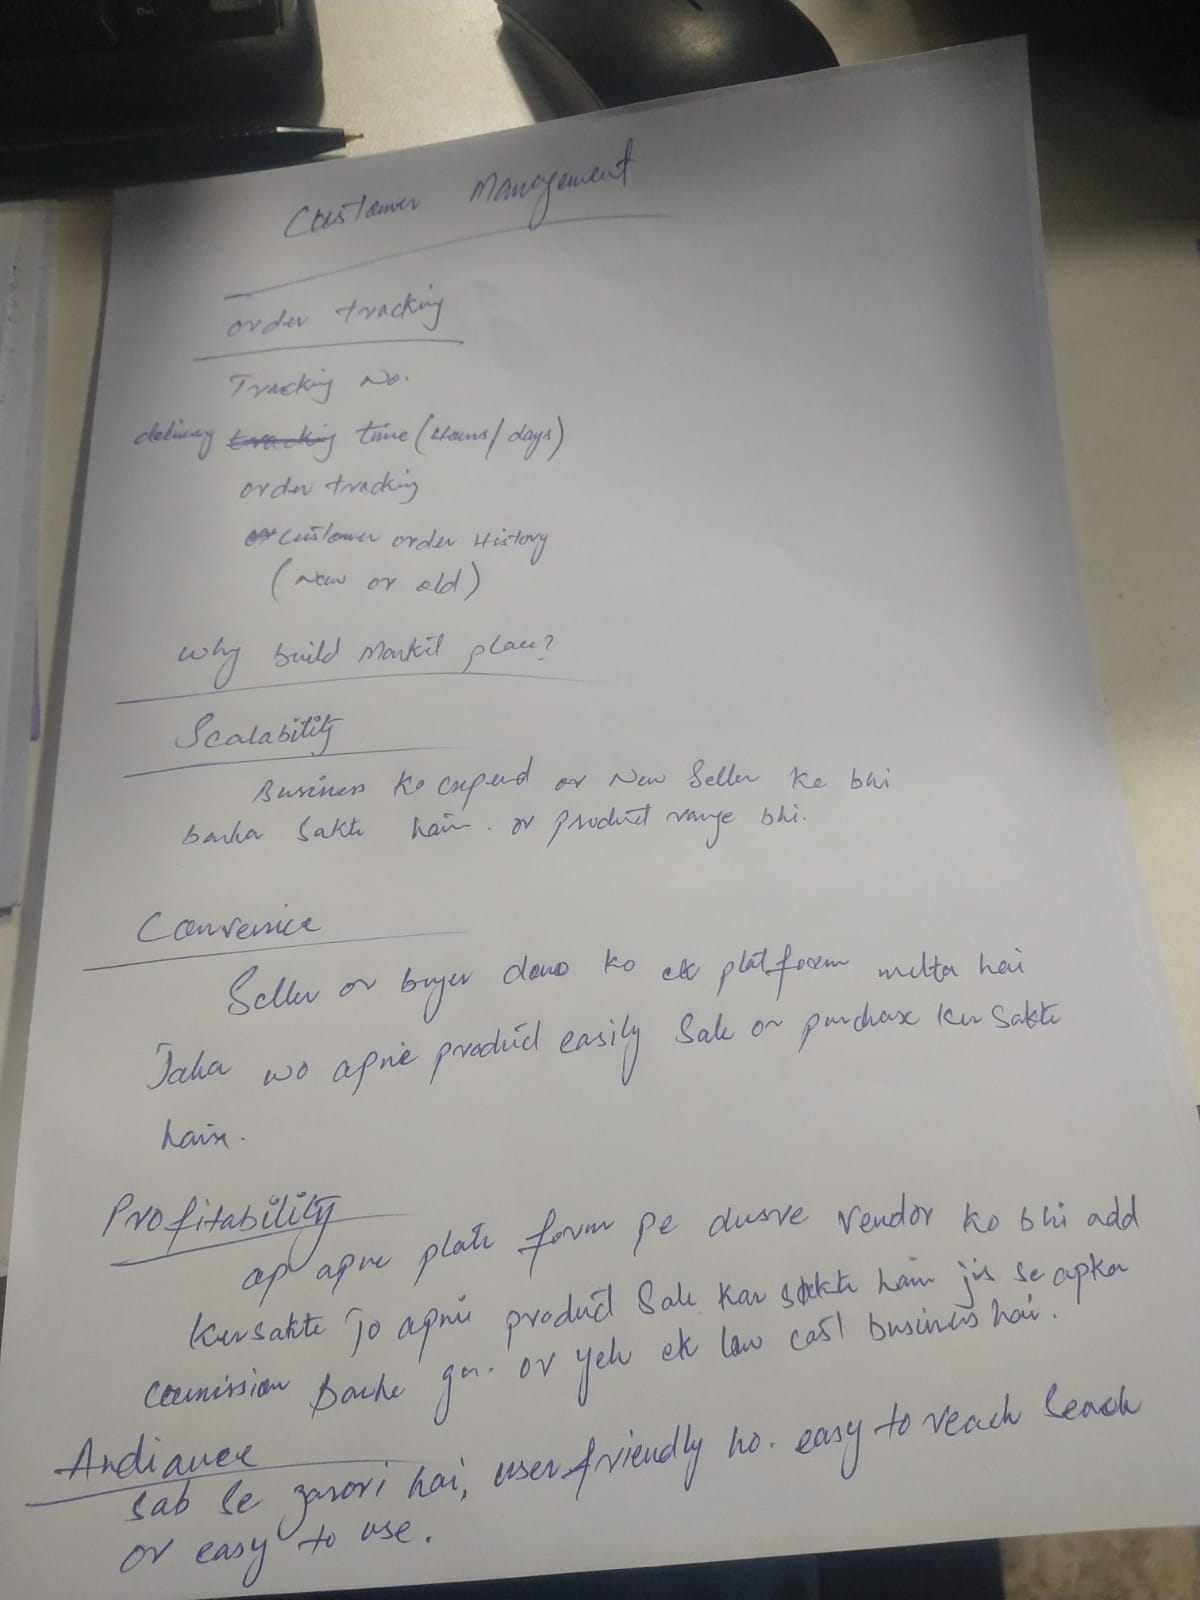 Customer Management
order tracking
Tracking No.
delivery tracking time (Hours/days)
order tracking
or Customer order History
(New or old)
Why build Markit place?
Scalability
Business ko expend or New Seller ke bhi
barha sakte hain. or product range bhi.
Convenice
Seller or buyer dono ko ek platform milta hai
Jaha wo apne product easily Sale or purchase ker sakte
hain.
Profitability
ap apne plate form pe dusre vendor ko bhi add
ker sakte Jo apni product Sale kar sakte hain jis se apka
commission ga. or yeh ek low cast business hai.
Andiance
Sab se zarori hai, user friendly ho. easy to reach
or easy to use.